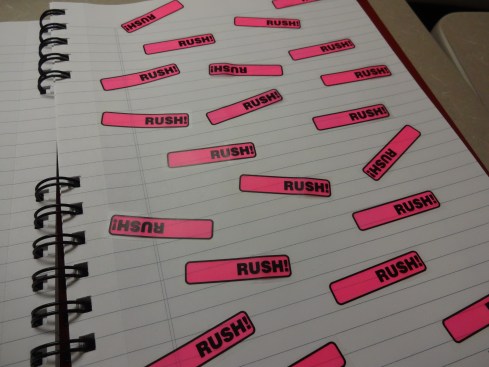 RUSH!
RUSH!
RUSH!
RUSH!
RUSH!
RUSH!
RUSH!
RUSH!
RUSH!
RUSH!
RUSH!
RUSH!
RUSH!
RUSH!
RUSH!
RUSH!
RUSH!
RUSH!